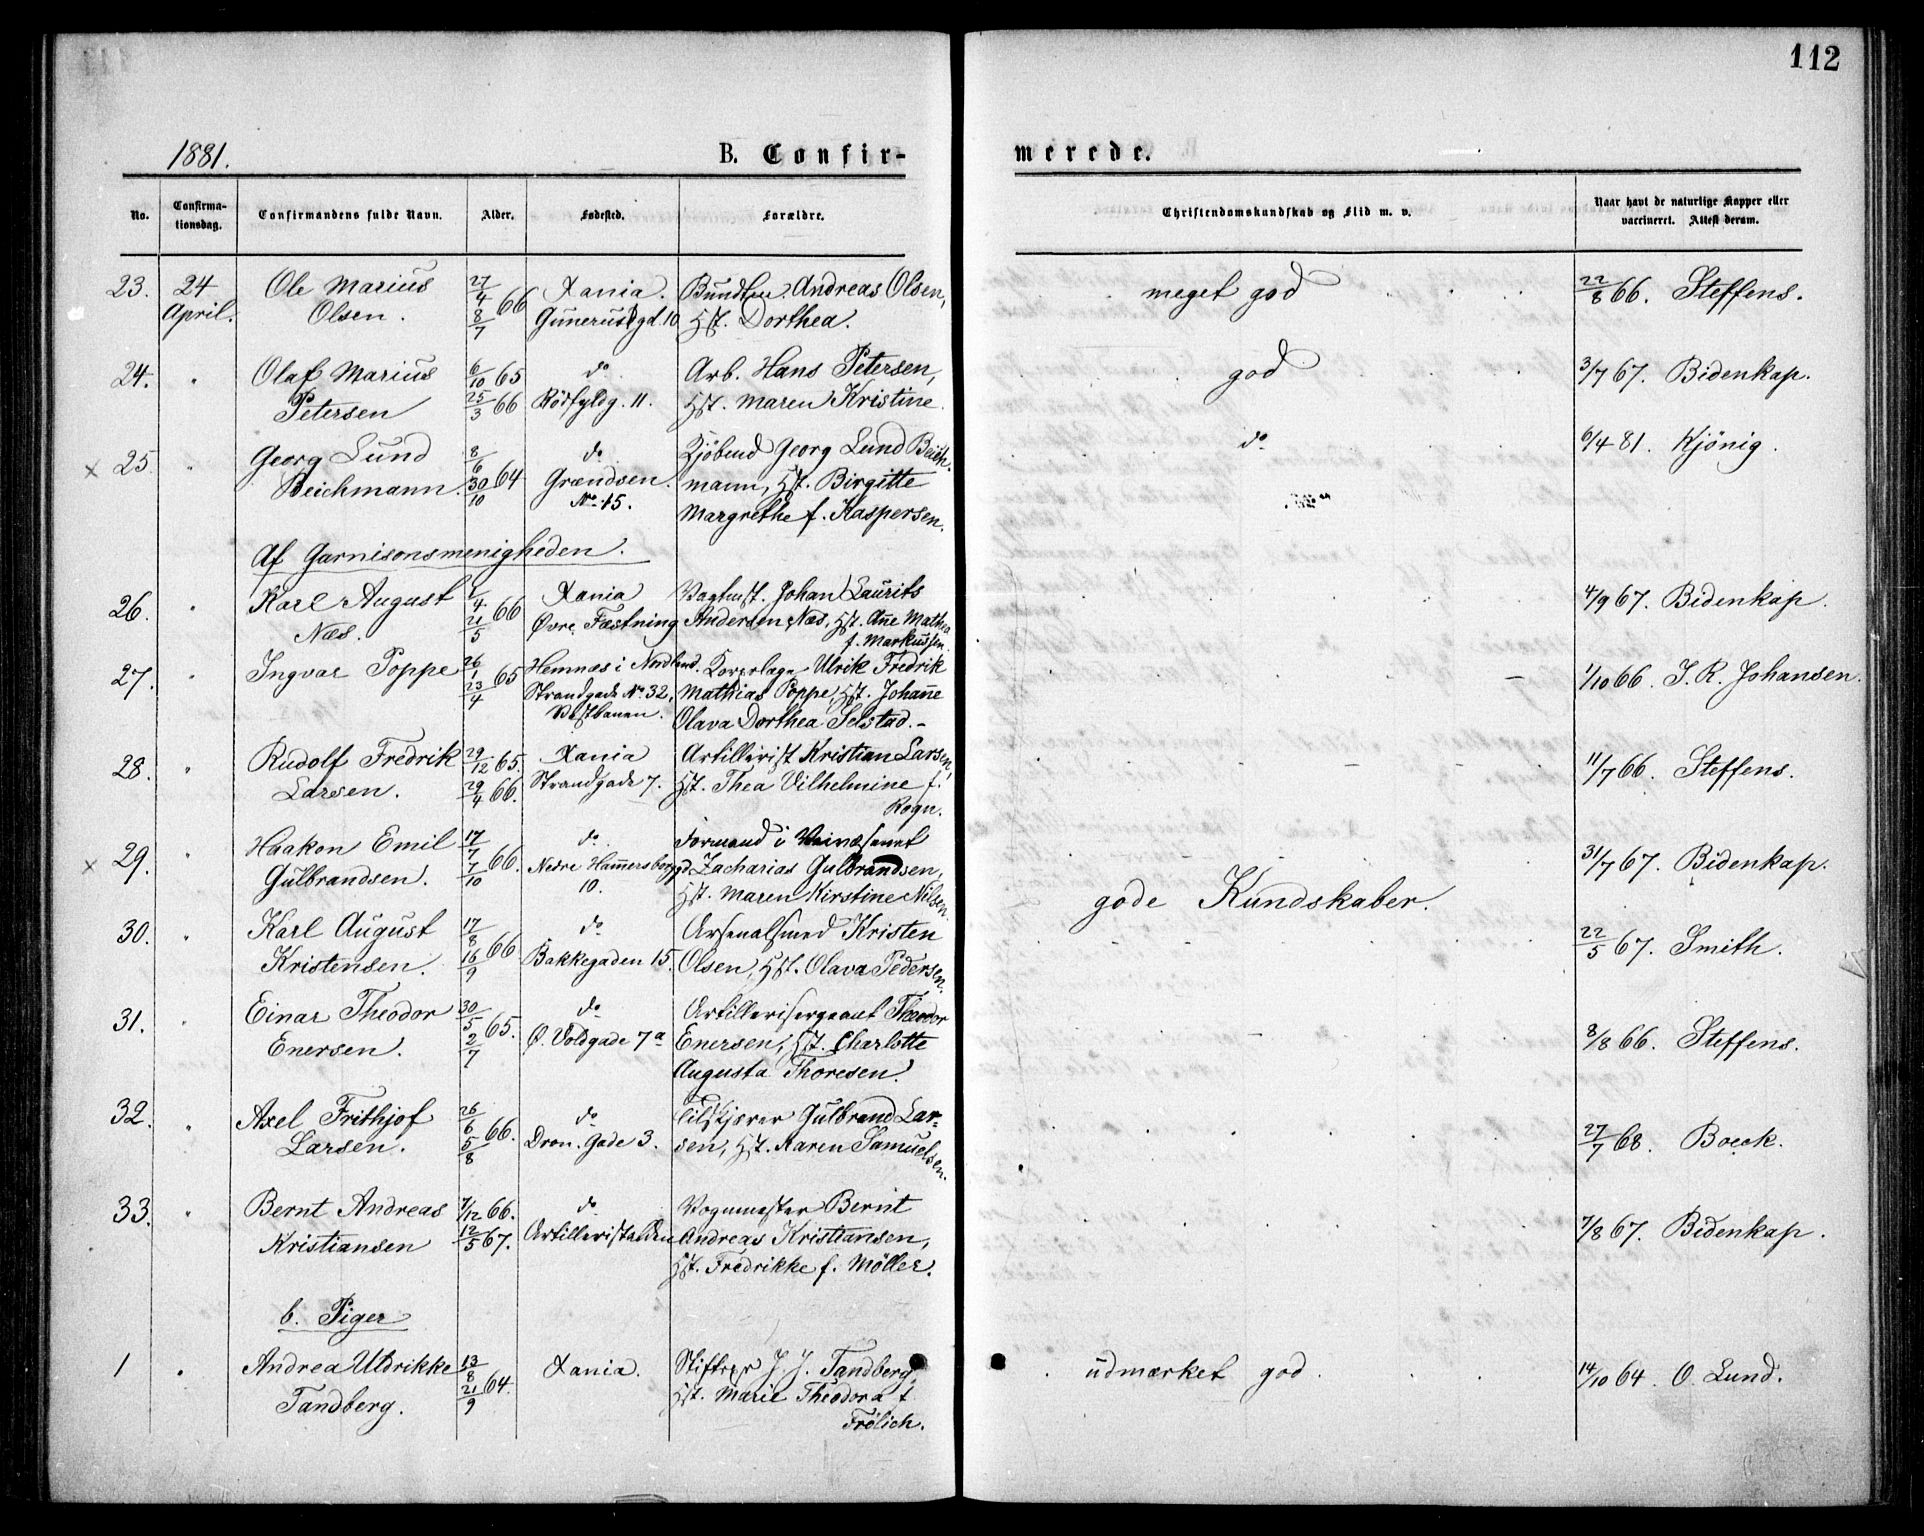 112
1881.
B. Confir-
merede.
No.
Confirma-
tionsdag.
Confirmandens fulde Navn.
Alder.
Fødested.
Forældre.
Christendomskundskab og Flid m. v.
Naar havt de naturlige Kopper eller
vaccineret. Attest derom.
23. 24 Ole Marius 27/4 66 Xania. Andreas Olsen, meget god 22/8 66. Steffens.
April. Olsen. 8/7 Gunerusgd. 10 Hst. Dorthea.
24. " Olaf Marius 6/10 65 do Arb. Hans Petersen, god 3/7 67. Bidenkap.
Petersen 25/3 66 Rödfyldg. 11. Hst. Maren Kristine.
x 25. " Georg Lund 8/6 64 do Kjöbmd Georg Lund Beich- do 6/4 81. Kjönig.
Beichmann. 30/10 Grændsen. mann, Hst. Birgitte
No. 15. Margrethe f. Kaspersen.
Af Garnisonsmenigheden.
26. " Karl August 1/4 66 Xania Vagtmst. Johan Laurits 4/9 67. Bidenkap.
Næs. 21/5 Övre Fæstning Andersen Næs, Hst. Ane Mathea
f. Markussen.
27. " Ingvar Poppe 26/1 65 Hemnæs i Nordland. Ulrik Fredrik 1/10 66. J. R. Johansen.
23/4 Strandgade No 32, Mathias Poppe, Hst. Johane
Vestbanen. Olava Dorthea Selstad. -
28. " Rudolf Fredrik 29/12 65. Xania Artillerist Kristian Larsen, 11/7 66. Steffens.
Larsen. 29/4 66. Strandgade 7. Hst. Thea Vilhelmine f.
Rogn.
x 29. " Haakon Emil 17/7 66. do Formand i Veivæsenet 31/7 67. Bidenkap.
Gulbrandsen. 7/10 Nedre Hammersborggd Zacharias Gulbrandsen, gode Kundskaber.
10. Hst. Maren Kirstine Nilsen.
30. " Karl August 17/8 66 do Arsenalsmed Kristen 22/5 67. Smith.
Kristensen. 16/9 Bakkegaden 15. Olsen, Hst. Olava Pedersen.
31. " Einar Theodor 30/5 65. do Artillerisergeant Theodor 8/8 66. Steffens.
Enersen. 2/7 Ø. Voldgade 7a Enersen, Hst. Charlotte
Augusta Thoresen.
32. " Axel Frithjof 26/6 66. do Tilskjerer Gulbrand Lar- 27/7 68. Boeck.
Larsen. 5/8 Dron. Gade 3. sen, Hst. Karen Samuelsen.
33. " Bernt Andreas 7/12 66. do Vognmester Bernt 7/8 67. Bidenkap.
Kristiansen 12/5 67. Artilleristalden Andreas Kristiansen,
Hst. Fredrikke f. Möller.
b. Piger
1 " Andrea Uldrikke 13/8 64. Xania. J. J. Tandberg, udmærket god 14/10 64. O. Lund.
Tandberg. 21/9 Hst. Marie Theodora f.
Frölich.